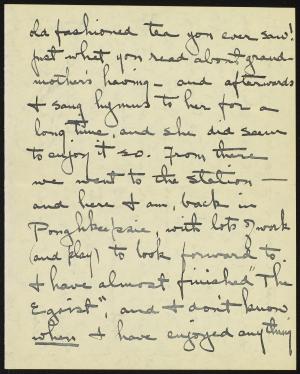 old fashioned tea you ever saw!
Just what you read about grand-
mother's having – and afterwards
I sang hymns to her for a
long time, and she did seem
to enjoy it so. From there
we went to the station —
and here I am, back in
Poughkeepsie, with lots of work
(and play) to look forward to.
I have almost finished "The
Egoist", and I don't know
when I have enjoyed anything